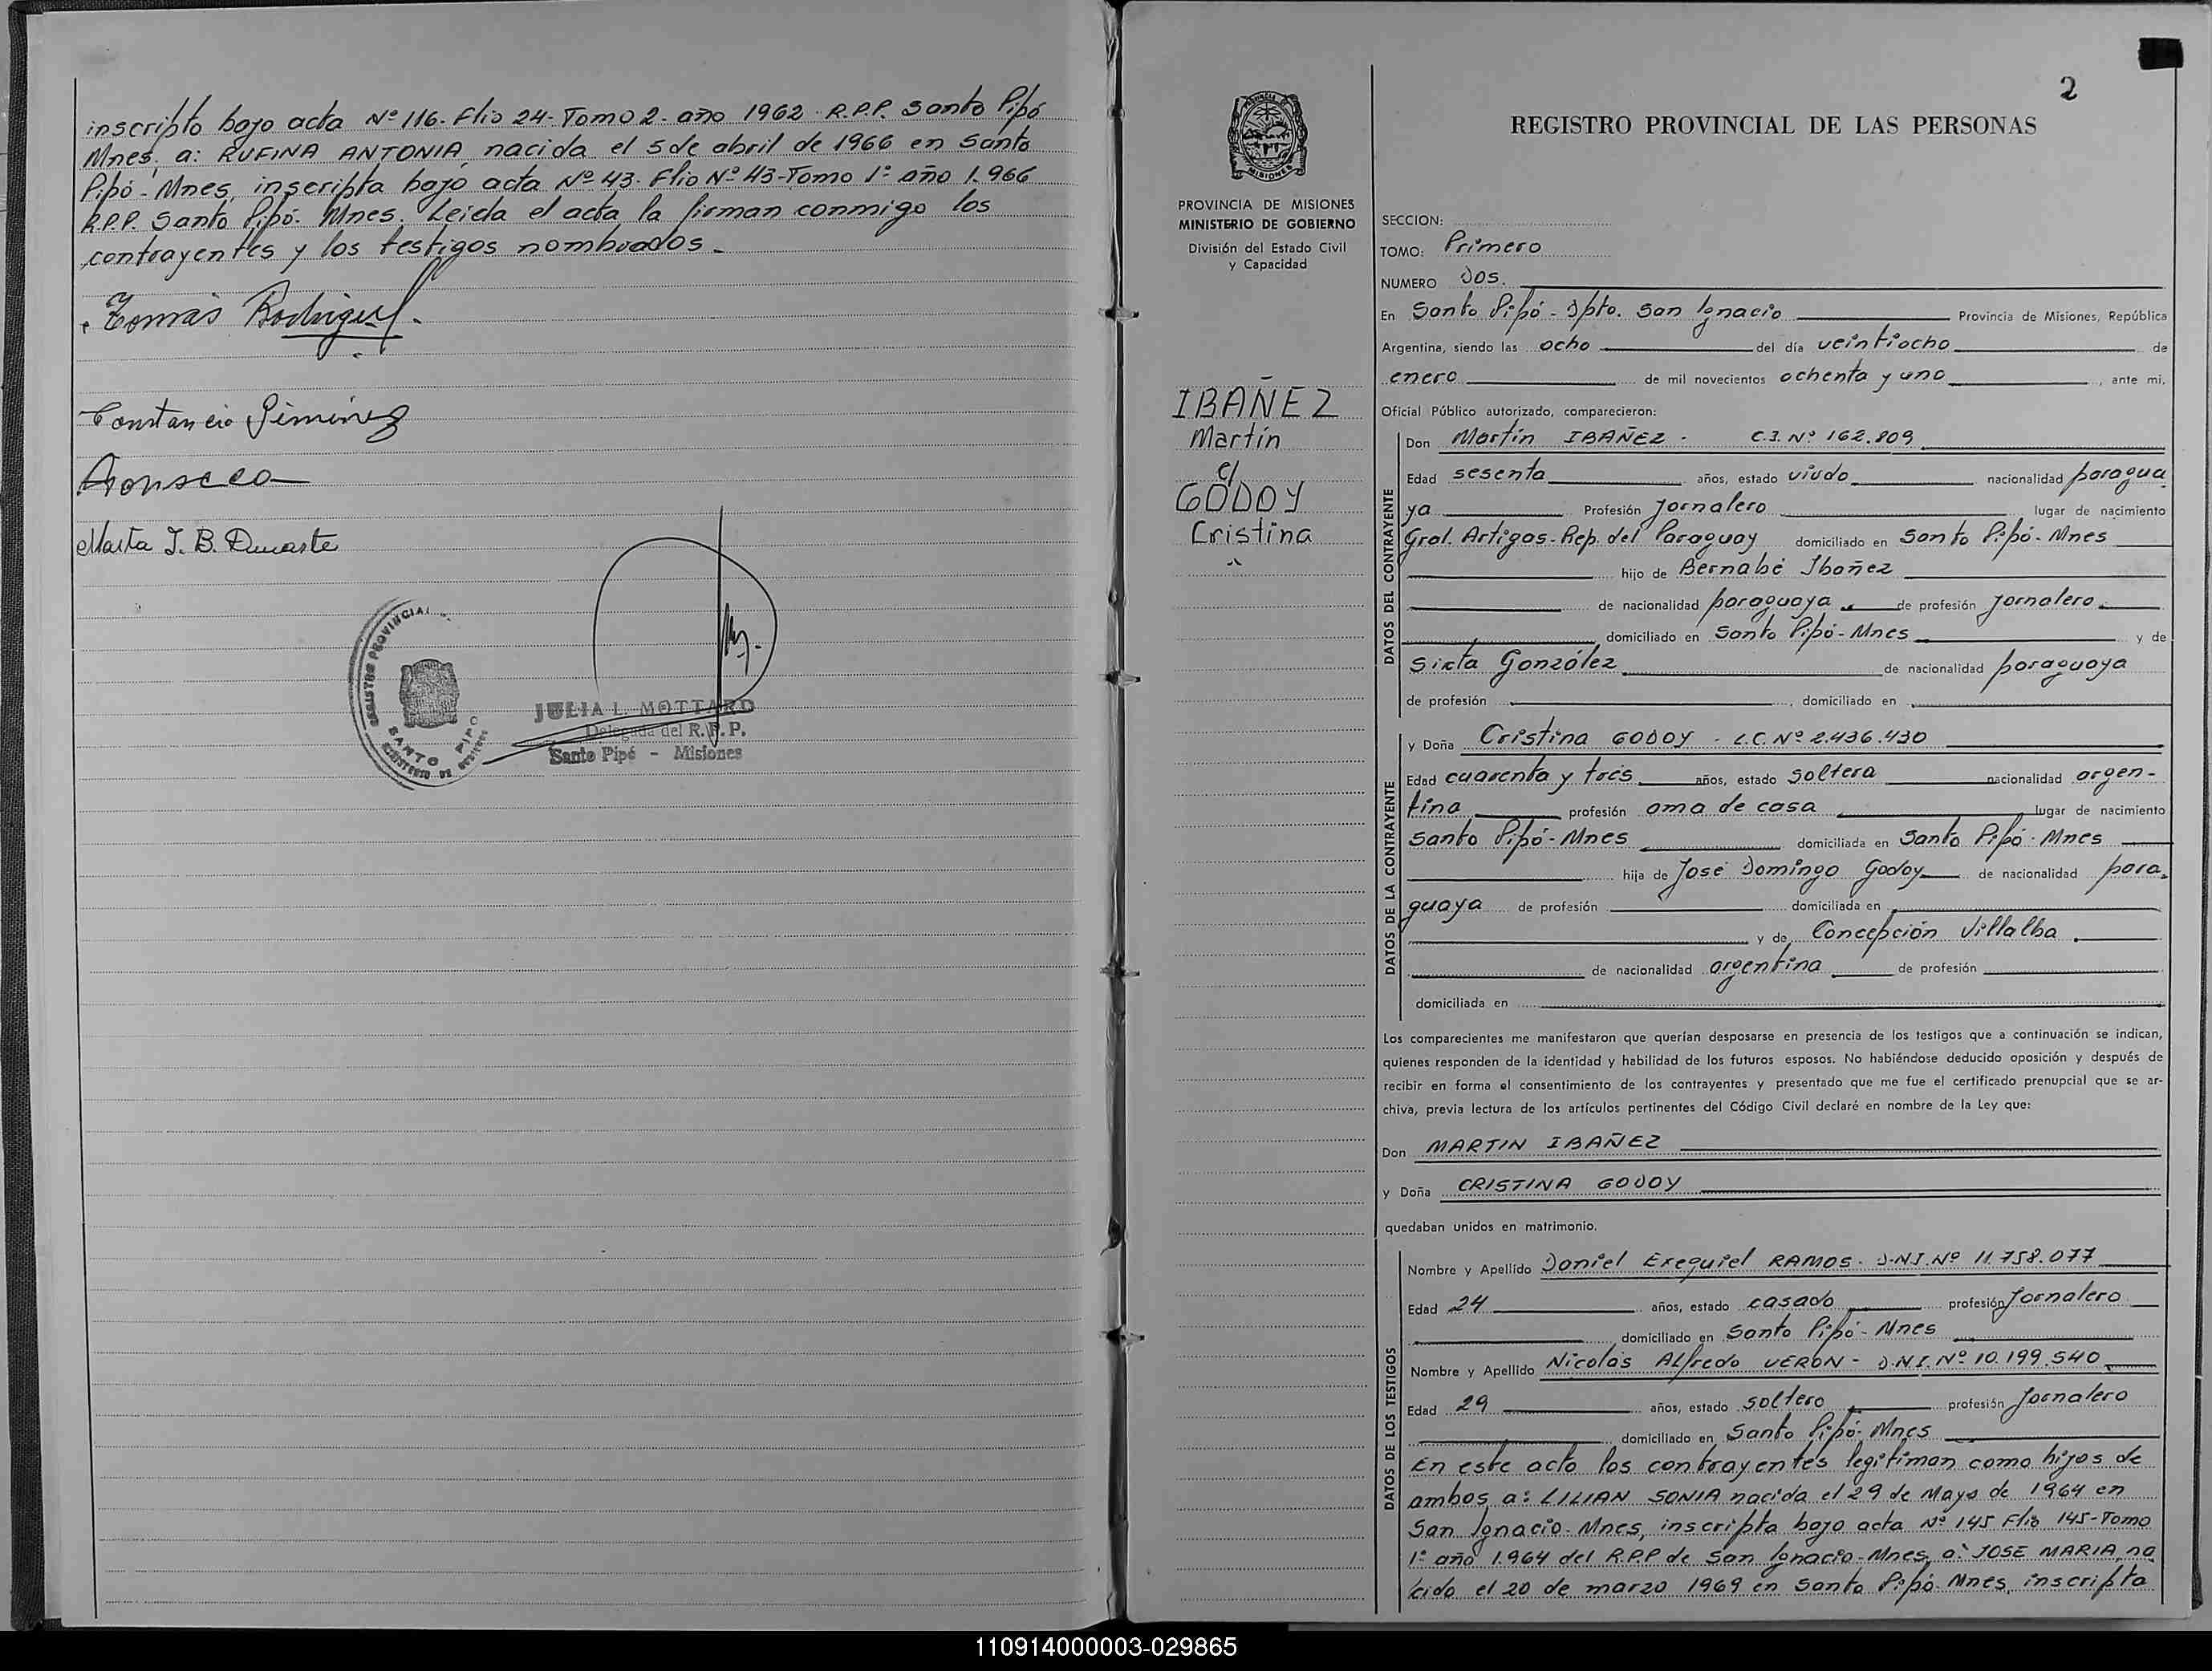 inscripto bajo acta Nº 116. Flio 24- Tomo 2. año 1962. R.P.P. Santo Pipó
Mnes. a: RUFINA ANTONIA, nacida el 5 de abril de 1966 en Santo
Pipó- Mnes, inscripta bajo acta Nº 43. Flio Nº 43-Tomo 1º año 1.966
R.P.P. Santo Pipó. Mnes. Leida el acta la firman conmigo los
contrayentes y los testigos nombrados.-
Tomás Rodriguez.
Constancio Giménez
Fonseca
Marta J. B. Duuarte
REGISTRO PROVINCIAL
SANTO PIPO
JULIA L. MOTTARD
Delegada del R.P.P.
Santo Pipó - Misiones
2
REGISTRO PROVINCIAL DE LAS PERSONAS
PROVINCIA DE MISIONES
MINISTERIO DE GOBIERNO
División del Estado Civil
y Capacidad
IBAÑEZ
Martín
c/
GODOY
Cristina
SECCION:
TOMO: Primero
NUMERO Dos.
En Santo Pipó - Dpto. San Ignacio Provincia de Misiones, República
Argentina, siendo las ocho del día veintiocho de
enero de mil novecientos ochenta y uno, ante mi,
Oficial Público autorizado, comparecieron:
DATOS DEL CONTRAYENTE
Don Martín IBAÑEZ - C.I. Nº 162.809
Edad sesenta años, estado viudo nacionalidad paragua
ya Profesión Jornalero lugar de nacimiento
Gral. Artigas- Rep. del Paraguay domiciliado en Santo Pipó- Mnes
hijo de Bernabé Ibañez
de nacionalidad paraguaya de profesión Jornalero
domiciliado en Santo Pipó- Mnes y de
Sixta González de nacionalidad paraguaya
de profesión , domiciliado en
DATOS DE LA CONTRAYENTE
y Doña Cristina GODOY - L.C. Nº 2.436.430
Edad cuarenta y tres años, estado soltera nacionalidad argen-
tina profesión ama de casa lugar de nacimiento
Santo Pipó- Mnes domiciliada en Santo Pipó- Mnes
hija de José Domingo Godoy de nacionalidad para
guaya de profesión domiciliada en
y de Concepción Villalba
de nacionalidad argentina de profesión
domiciliada en
Los comparecientes me manifestaron que querían desposarse en presencia de los testigos que a continuación se indican,
quienes responden de la identidad y habilidad de los futuros esposos. No habiéndose deducido oposición y después de
recibir en forma el consentimiento de los contrayentes y presentado que me fue el certificado prenupcial que se ar-
chiva, previa lectura de los artículos pertinentes del Código Civil declaré en nombre de la Ley que:
Don MARTIN IBAÑEZ
y Doña CRISTINA GODOY
quedaban unidos en matrimonio.
DATOS DE LOS TESTIGOS
Nombre y Apellido Daniel Exequiel RAMOS - D.N.I. Nº 11.758.077
Edad 24 años, estado casado profesión Jornalero
domiciliado en Santo Pipó- Mnes
Nombre y Apellido Nicolás Alfredo VERON - D.N.I. Nº 10.199.540
Edad 29 años, estado soltero profesión Jornalero
domiciliado en Santo Pipó- Mnes
En este acto los contrayentes legitiman como hijos de
ambos, a: LILIAN SONIA nacida el 29 de Mayo de 1964 en
San Ignacio- Mnes, inscripta bajo acta Nº 145 Flio 145- Tomo
1º año 1.964 del R.P.P de San Ignacio- Mnes, a: JOSE MARIA, na
cido el 20 de marzo 1969 en Santo Pipó- Mnes, inscripto
110914000003-029865